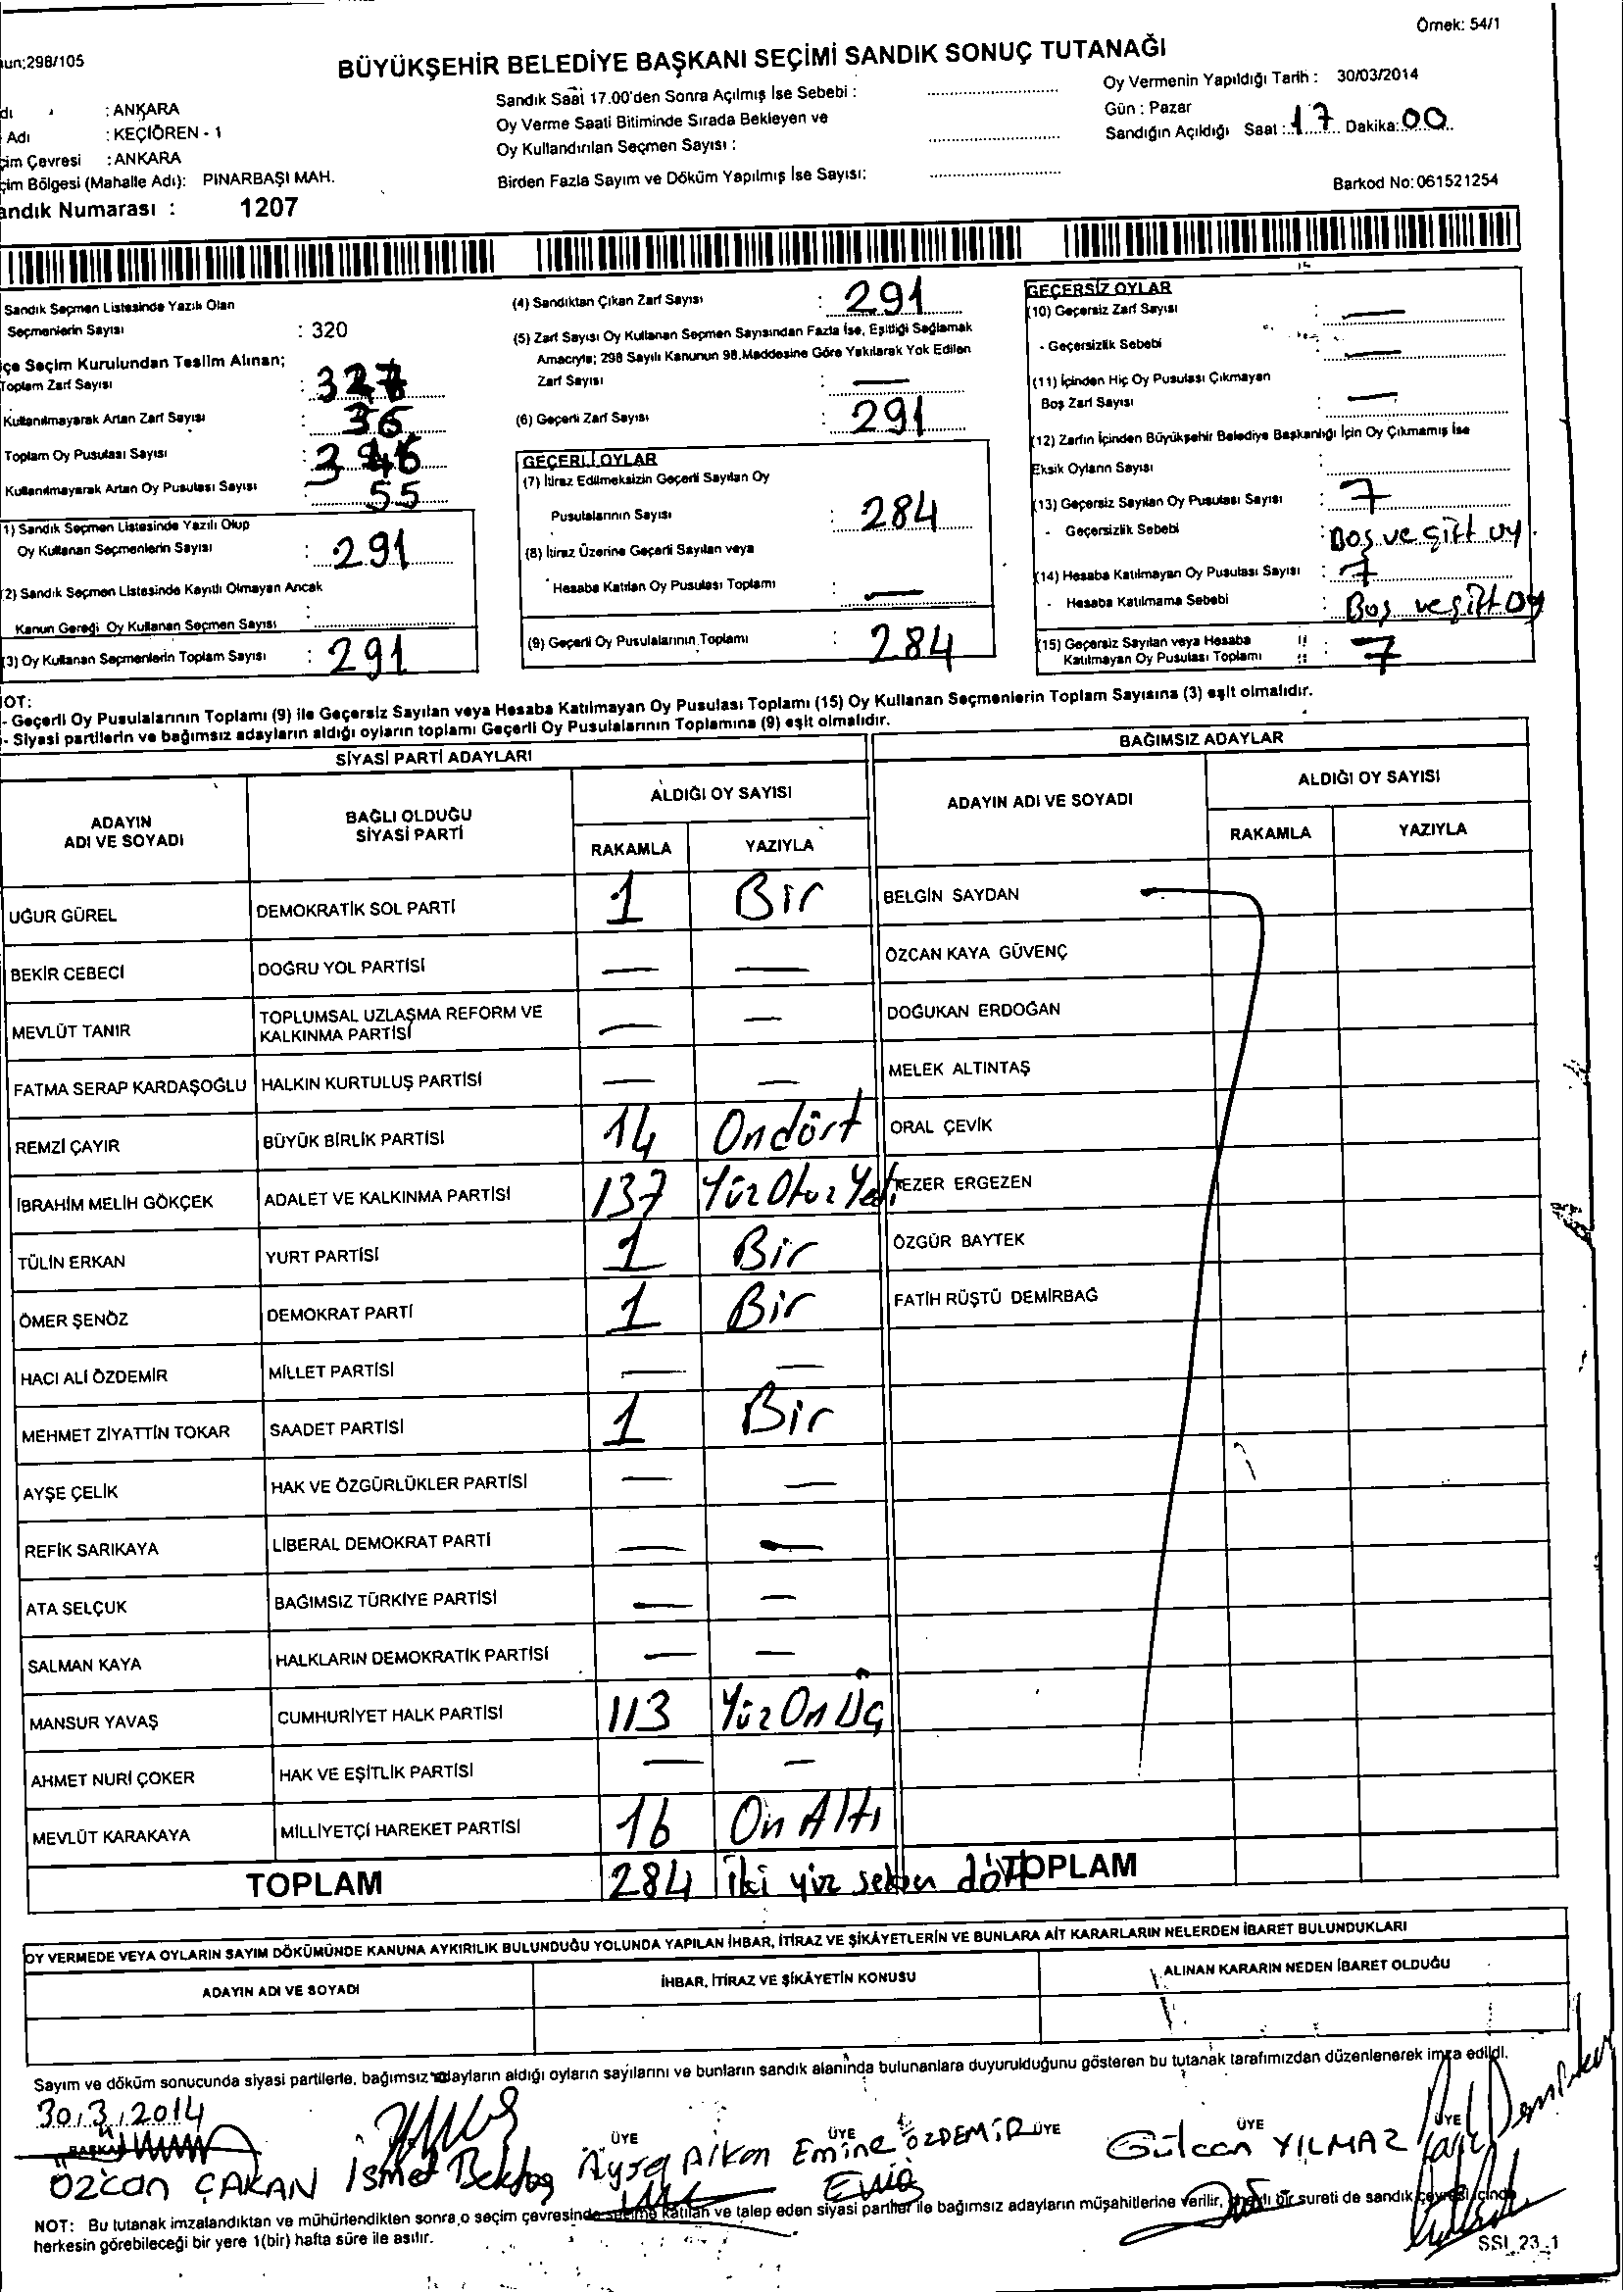 Örnek: 54/1
BÜYÜKŞEHİR BELEDİYE BAŞKANI SEÇİMİ SANDIK SONUÇ TUTANAĞI
:298/105
: ANKARA
Adı : KEÇİÖREN - 1
Çevresi : ANKARA
Bölgesi (Mahalle Adı): PINARBAŞI MAH.
Numarası : 1207
Sandık Saat 17.00'den Sonra Açılmış İse Sebebi :
Oy Verme Saati Bitiminde Sırada Bekleyen ve
Oy Kullandırılan Seçmen Sayısı :
Birden Fazla Sayım ve Döküm Yapılmış İse Sayısı:
Oy Vermenin Yapıldığı Tarih : 30/03/2014
Gün : Pazar
Sandığın Açıldığı Saat : 17 Dakika: 00
Barkod No: 061521254
Sandık Seçmen Listesinde Yazılı Olan
Seçmenlerin Sayısı : 320
Seçim Kurulundan Teslim Alınan;
Toplam Zarf Sayısı : 327
Kullanılmayarak Artan Zarf Sayısı : 36
Toplam Oy Pusulası Sayısı : 346
Kullanılmayarak Artan Oy Pusulası Sayısı : 55
1) Sandık Seçmen Listesinde Yazılı Olup
Oy Kullanan Seçmenlerin Sayısı : 291
(2) Sandık Seçmen Listesinde Kayıtlı Olmayan Ancak
Kanun Gereği Oy Kullanan Seçmen Sayısı :
(3) Oy Kullanan Seçmenlerin Toplam Sayısı : 291
(4) Sandıktan Çıkan Zarf Sayısı : 291
(5) Zarf Sayısı Oy Kullanan Seçmen Sayısından Fazla İse, Eşitliği Sağlamak
Amacıyla; 298 Sayılı Kanunun 98.Maddesine Göre Yakılarak Yok Edilen
Zarf Sayısı : —
(6) Geçerli Zarf Sayısı : 291
GEÇERLİ OYLAR
(7) İtiraz Edilmeksizin Geçerli Sayılan Oy
Pusulalarının Sayısı : 284
(8) İtiraz Üzerine Geçerli Sayılan veya
Hesaba Katılan Oy Pusulası Toplamı : —
(9) Geçerli Oy Pusulalarının Toplamı : 284
GEÇERSİZ OYLAR
(10) Geçersiz Zarf Sayısı : —
- Geçersizlik Sebebi : —
(11) İçinden Hiç Oy Pusulası Çıkmayan
Boş Zarf Sayısı : —
(12) Zarfın İçinden Büyükşehir Belediye Başkanlığı İçin Oy Çıkmamış İse
Eksik Oyların Sayısı :
(13) Geçersiz Sayılan Oy Pusulası Sayısı : 7
- Geçersizlik Sebebi : Boş ve çift oy.
(14) Hesaba Katılmayan Oy Pusulası Sayısı : 7
- Hesaba Katılmama Sebebi : Boş ve çift oy
(15) Geçersiz Sayılan veya Hesaba
Katılmayan Oy Pusulası Toplamı : 7
NOT:
- Geçerli Oy Pusulalarının Toplamı (9) ile Geçersiz Sayılan veya Hesaba Katılmayan Oy Pusulası Toplamı (15) Oy Kullanan Seçmenlerin Toplam Sayısına (3) eşit olmalıdır.
- Siyasi partilerin ve bağımsız adayların aldığı oyların toplamı Geçerli Oy Pusulalarının Toplamına (9) eşit olmalıdır.
SİYASİ PARTİ ADAYLARI
ADAYIN ADI VE SOYADI BAĞLI OLDUĞU SİYASİ PARTİ ALDIĞI OY SAYISI
RAKAMLA YAZIYLA
UĞUR GÜREL DEMOKRATİK SOL PARTİ 1 Bir
BEKİR CEBECİ DOĞRU YOL PARTİSİ — —
MEVLÜT TANIR TOPLUMSAL UZLAŞMA REFORM VE KALKINMA PARTİSİ — —
FATMA SERAP KARDAŞOĞLU HALKIN KURTULUŞ PARTİSİ — —
REMZİ ÇAYIR BÜYÜK BİRLİK PARTİSİ 14 Ondört
İBRAHİM MELİH GÖKÇEK ADALET VE KALKINMA PARTİSİ 137 Yüz Otuz Yedi
TÜLİN ERKAN YURT PARTİSİ 1 Bir
ÖMER ŞENÖZ DEMOKRAT PARTİ 1 Bir
HACI ALİ ÖZDEMİR MİLLET PARTİSİ — —
MEHMET ZİYATTİN TOKAR SAADET PARTİSİ 1 Bir
AYŞE ÇELİK HAK VE ÖZGÜRLÜKLER PARTİSİ — —
REFİK SARIKAYA LİBERAL DEMOKRAT PARTİ — —
ATA SELÇUK BAĞIMSIZ TÜRKİYE PARTİSİ — —
SALMAN KAYA HALKLARIN DEMOKRATİK PARTİSİ — —
MANSUR YAVAŞ CUMHURİYET HALK PARTİSİ 113 Yüz On Üç
AHMET NURİ ÇOKER HAK VE EŞİTLİK PARTİSİ — —
MEVLÜT KARAKAYA MİLLİYETÇİ HAREKET PARTİSİ 16 On Altı
TOPLAM 284 İki yüz seksen dört
BAĞIMSIZ ADAYLAR
ADAYIN ADI VE SOYADI ALDIĞI OY SAYISI
RAKAMLA YAZIYLA
BELGİN SAYDAN
ÖZCAN KAYA GÜVENÇ
DOĞUKAN ERDOĞAN
MELEK ALTINTAŞ
ORAL ÇEVİK
TEZER ERGEZEN
ÖZGÜR BAYTEK
FATİH RÜŞTÜ DEMİRBAĞ
TOPLAM
OY VERMEDE VEYA OYLARIN SAYIM DÖKÜMÜNDE KANUNA AYKIRILIK BULUNDUĞU YOLUNDA YAPILAN İHBAR, İTİRAZ VE ŞİKÂYETLERİN VE BUNLARA AİT KARARLARIN NELERDEN İBARET BULUNDUKLARI
ADAYIN ADI VE SOYADI İHBAR, İTİRAZ VE ŞİKÂYETİN KONUSU ALINAN KARARIN NEDEN İBARET OLDUĞU
Sayım ve döküm sonucunda siyasi partilerle, bağımsız adayların aldığı oyların sayılarını ve bunların sandık alanında bulunanlara duyurulduğunu gösteren bu tutanak tarafımızdan düzenlenerek imza edildi.
30.3.2014
BAŞKAN ÜYE ÜYE ÜYE ÜYE ÜYE
Özcan ÇAKAN İsmet Bektaş Aysel Alkan Emine ÖZDEMİR Gülcan YILMAZ
NOT: Bu tutanak imzalandıktan ve mühürlendikten sonra, o seçim çevresinde seçime katılan ve talep eden siyasi partiler ile bağımsız adayların müşahitlerine verilir, onaylı bir sureti de sandık çevresi içinde
herkesin görebileceği bir yere 1(bir) hafta süre ile asılır.
SSI_23_1